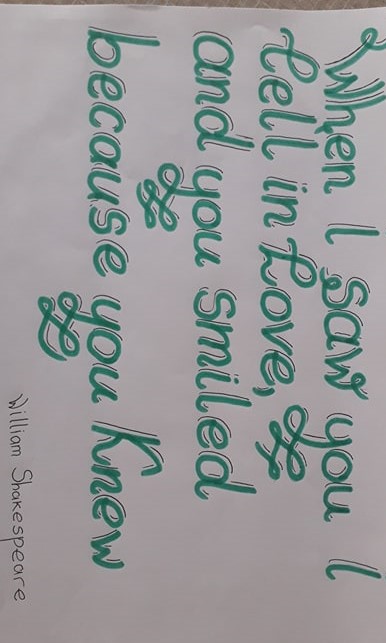 When I saw you I
fell in Love,
and you smiled
because you Knew
William Shakespeare